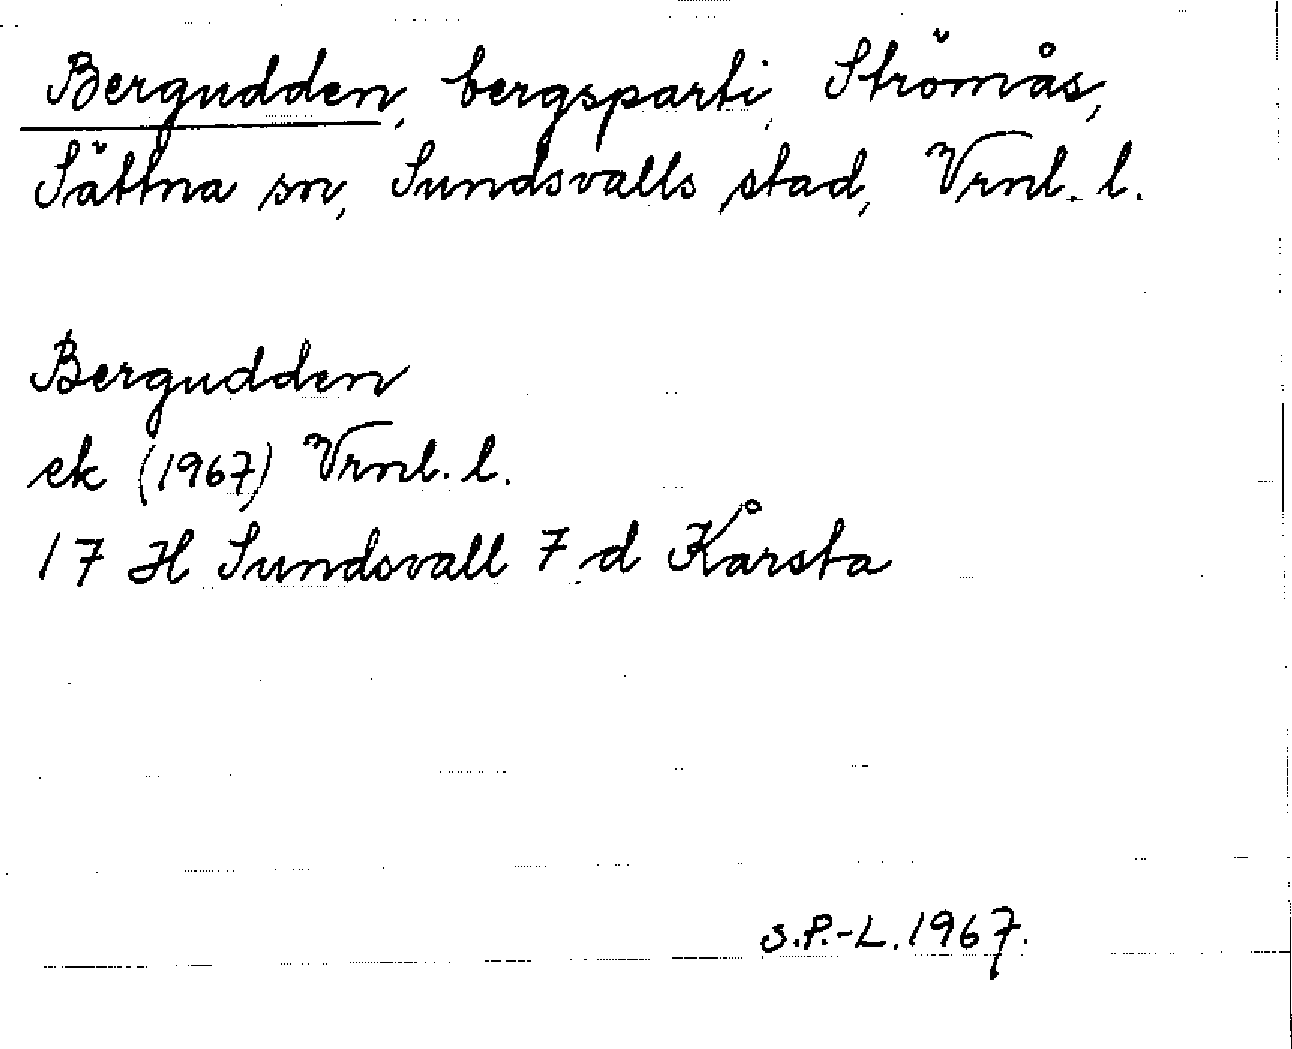 Bergudden, bergsparti, Strömås,
Sättna sn, Sundsvalls stad, Vrnl. l.
Bergudden
ek (1967) Vrnl. l.
17 H Sundsvall 7 d Kårsta
S.P.-L. 1967.